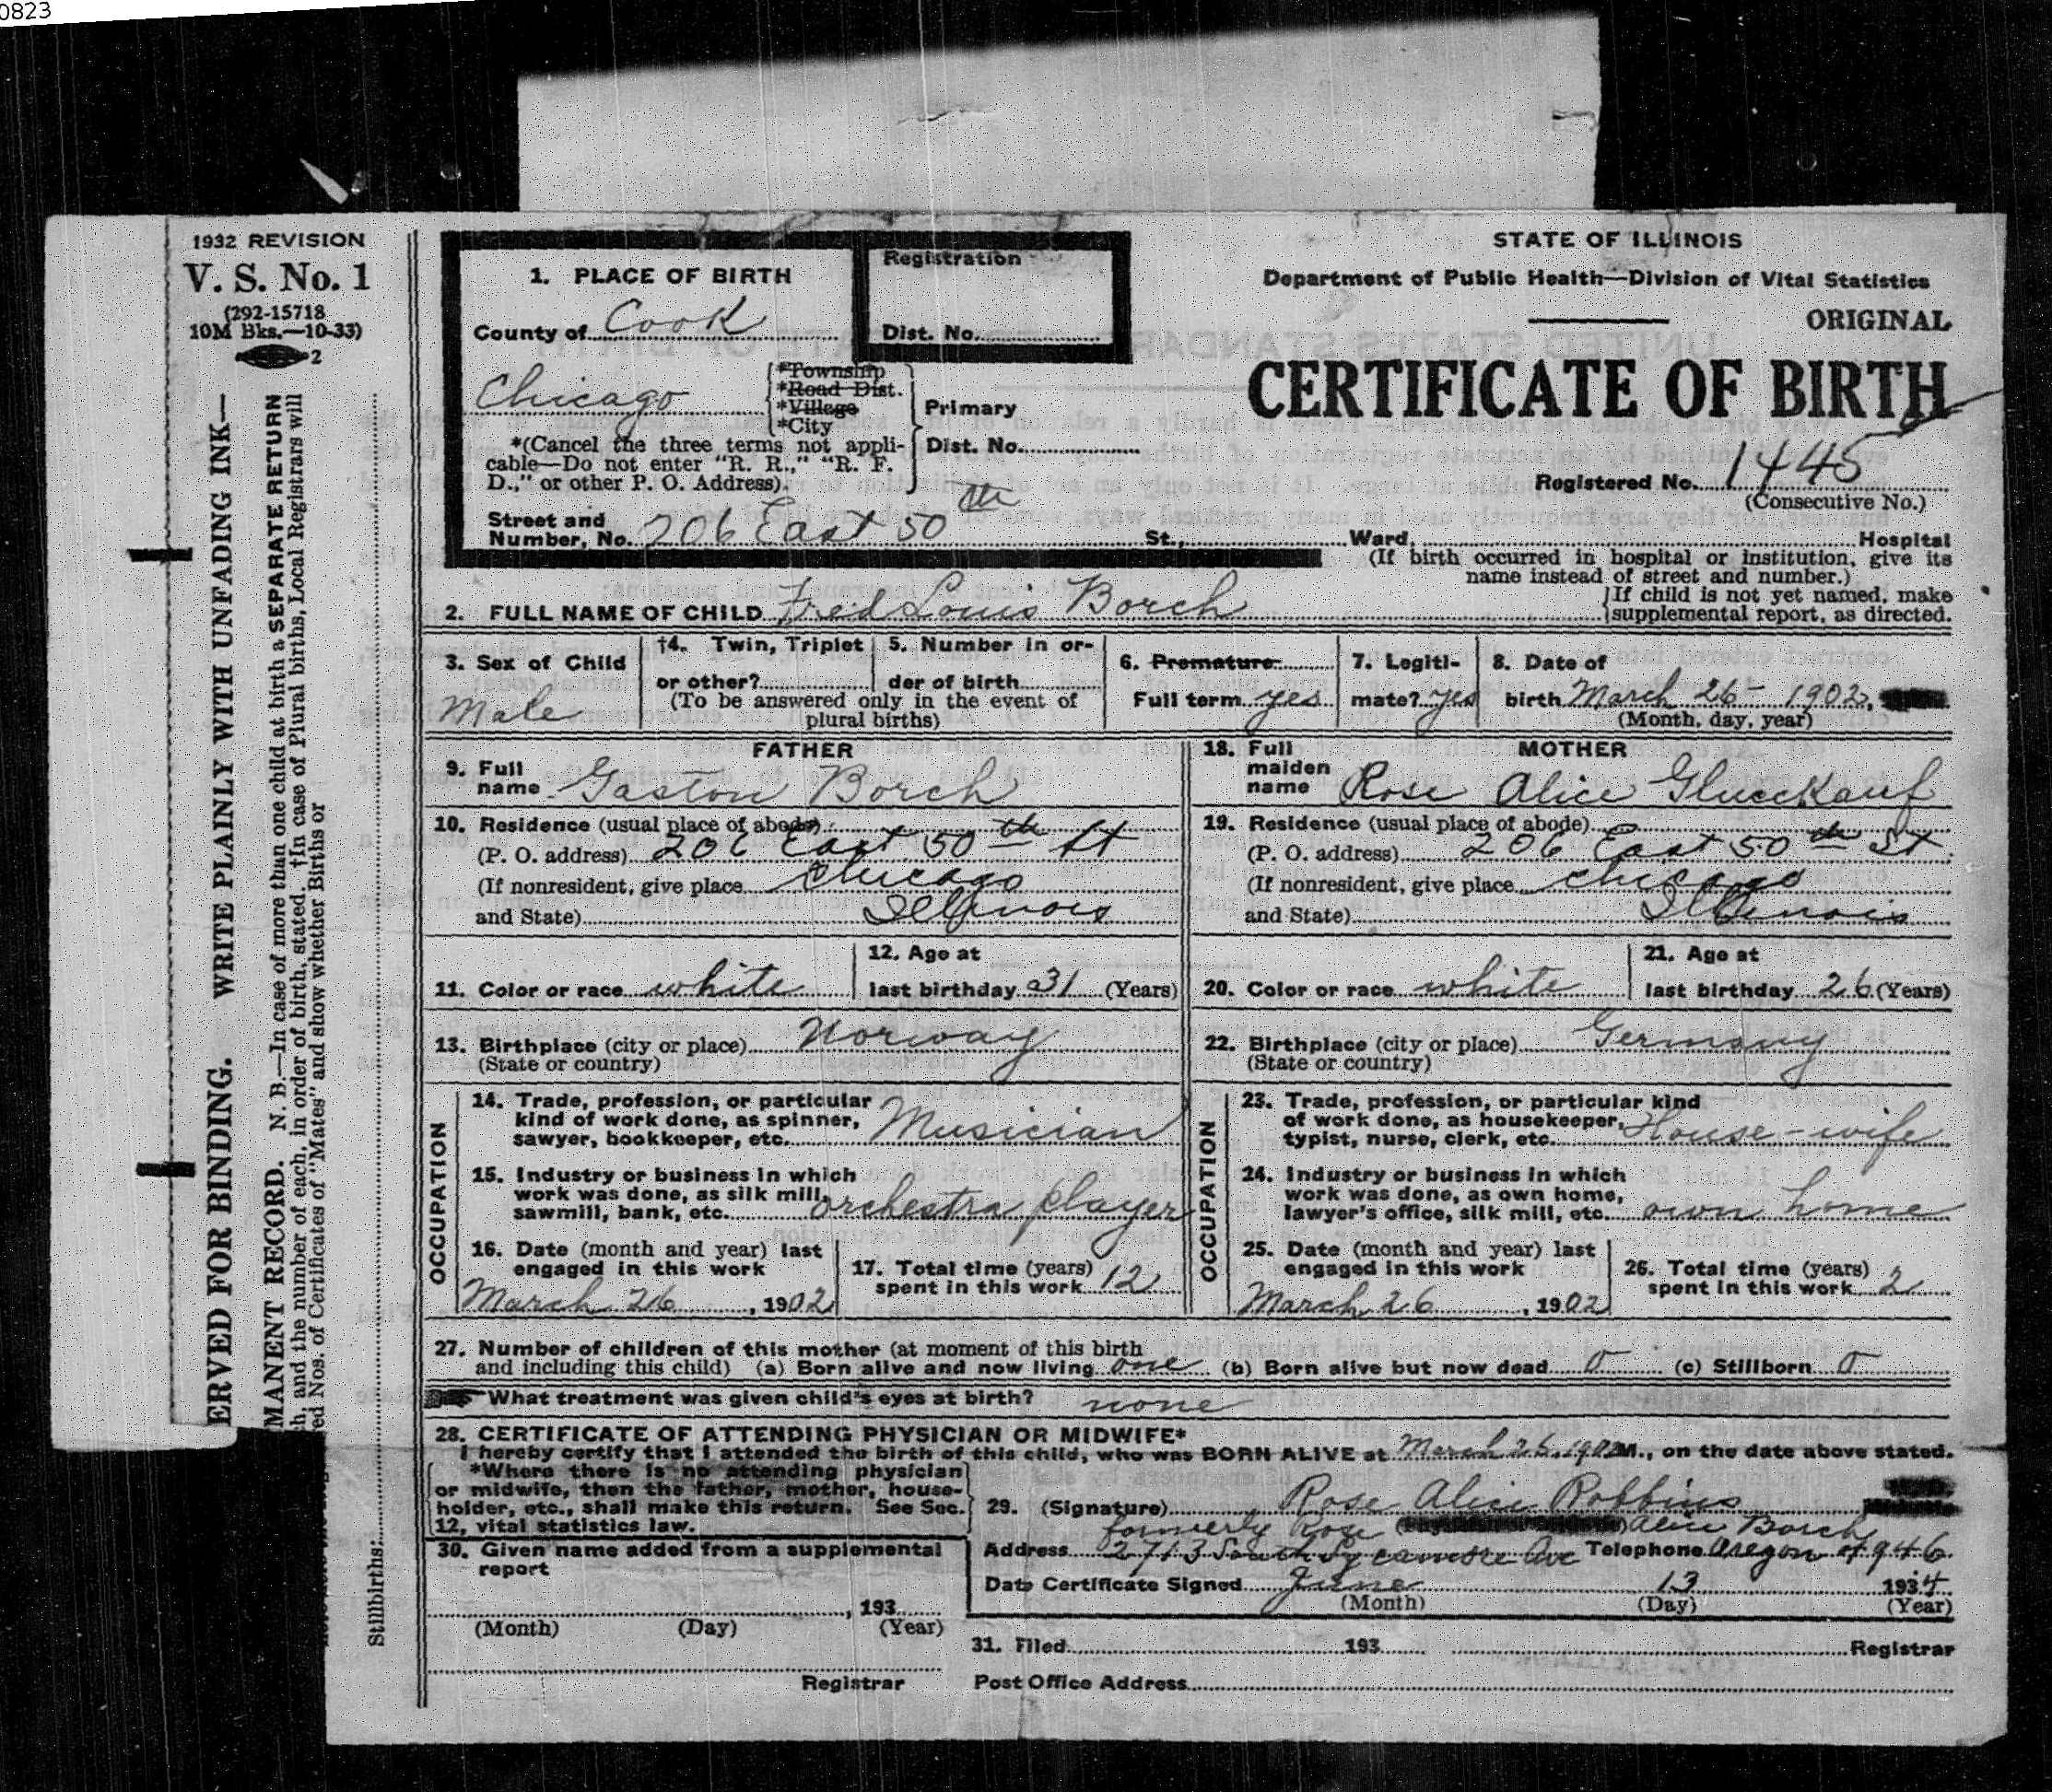 0823
1932 REVISION
V. S. No. 1
(292-15718
10M Bks.—10-33)
2
ERVED FOR BINDING. WRITE PLAINLY WITH UNFADING INK—
MANENT RECORD. N. B.—In case of more than one child at birth a SEPARATE RETURN
h, and the number of each, in order of birth, stated. †In case of Plural births, Local Registrars will
ed Nos. of Certificates of "Mates" and show whether Births or
Stillbirths:
1. PLACE OF BIRTH
County of Cook
Registration
Dist. No.
Chicago
*Township
*Road Dist.
*Village
*City
*(Cancel the three terms not appli-
cable—Do not enter "R. R.," "R. F.
D.," or other P. O. Address).
Primary
Dist. No.
Street and
Number, No. 206 East 50th St., Ward, Hospital
STATE OF ILLINOIS
Department of Public Health—Division of Vital Statistics
ORIGINAL
CERTIFICATE OF BIRTH
Registered No. 1445
(Consecutive No.)
(If birth occurred in hospital or institution, give its
name instead of street and number.)
2. FULL NAME OF CHILD Fred Louis Borch
If child is not yet named, make
supplemental report, as directed.
3. Sex of Child
Male
†4. Twin, Triplet
or other?
5. Number in or-
der of birth
(To be answered only in the event of
plural births)
6. Premature
Full term yes
7. Legiti-
mate? yes
8. Date of
birth March 26 - 1902,
(Month, day, year)
FATHER
9. Full
name Gaston Borch
10. Residence (usual place of abode)
(P. O. address) 206 East 50th St
(If nonresident, give place Chicago
and State) Illinois
11. Color or race white
12. Age at
last birthday 31 (Years)
13. Birthplace (city or place) Norway
(State or country)
OCCUPATION
14. Trade, profession, or particular
kind of work done, as spinner,
sawyer, bookkeeper, etc. Musician
15. Industry or business in which
work was done, as silk mill,
sawmill, bank, etc. orchestra player
16. Date (month and year) last
engaged in this work
March 26, 1902
17. Total time (years)
spent in this work 12
MOTHER
18. Full
maiden
name Rose Alice Glueckauf
19. Residence (usual place of abode)
(P. O. address) 206 East 50th St
(If nonresident, give place Chicago
and State) Illinois
20. Color or race white
21. Age at
last birthday 26 (Years)
22. Birthplace (city or place) Germany
(State or country)
OCCUPATION
23. Trade, profession, or particular kind
of work done, as housekeeper,
typist, nurse, clerk, etc. House-wife
24. Industry or business in which
work was done, as own home,
lawyer's office, silk mill, etc. own home
25. Date (month and year) last
engaged in this work
March 26, 1902
26. Total time (years)
spent in this work 2
27. Number of children of this mother (at moment of this birth
and including this child) (a) Born alive and now living one (b) Born alive but now dead 0 (c) Stillborn 0
What treatment was given child's eyes at birth? none
28. CERTIFICATE OF ATTENDING PHYSICIAN OR MIDWIFE*
I hereby certify that I attended the birth of this child, who was BORN ALIVE at March 26, 1902 M., on the date above stated.
*Where there is no attending physician
or midwife, then the father, mother, house-
holder, etc., shall make this return. See Sec.
12, vital statistics law.
29. (Signature) Rose Alice Robbins
formerly Rose Alice Borch
Address 2713 South Sycamore Ave Telephone Oregon 4946
Date Certificate Signed June 13 1934
(Month) (Day) (Year)
30. Given name added from a supplemental
report
, 193
(Month) (Day) (Year)
Registrar
31. Filed 193 Registrar
Post Office Address